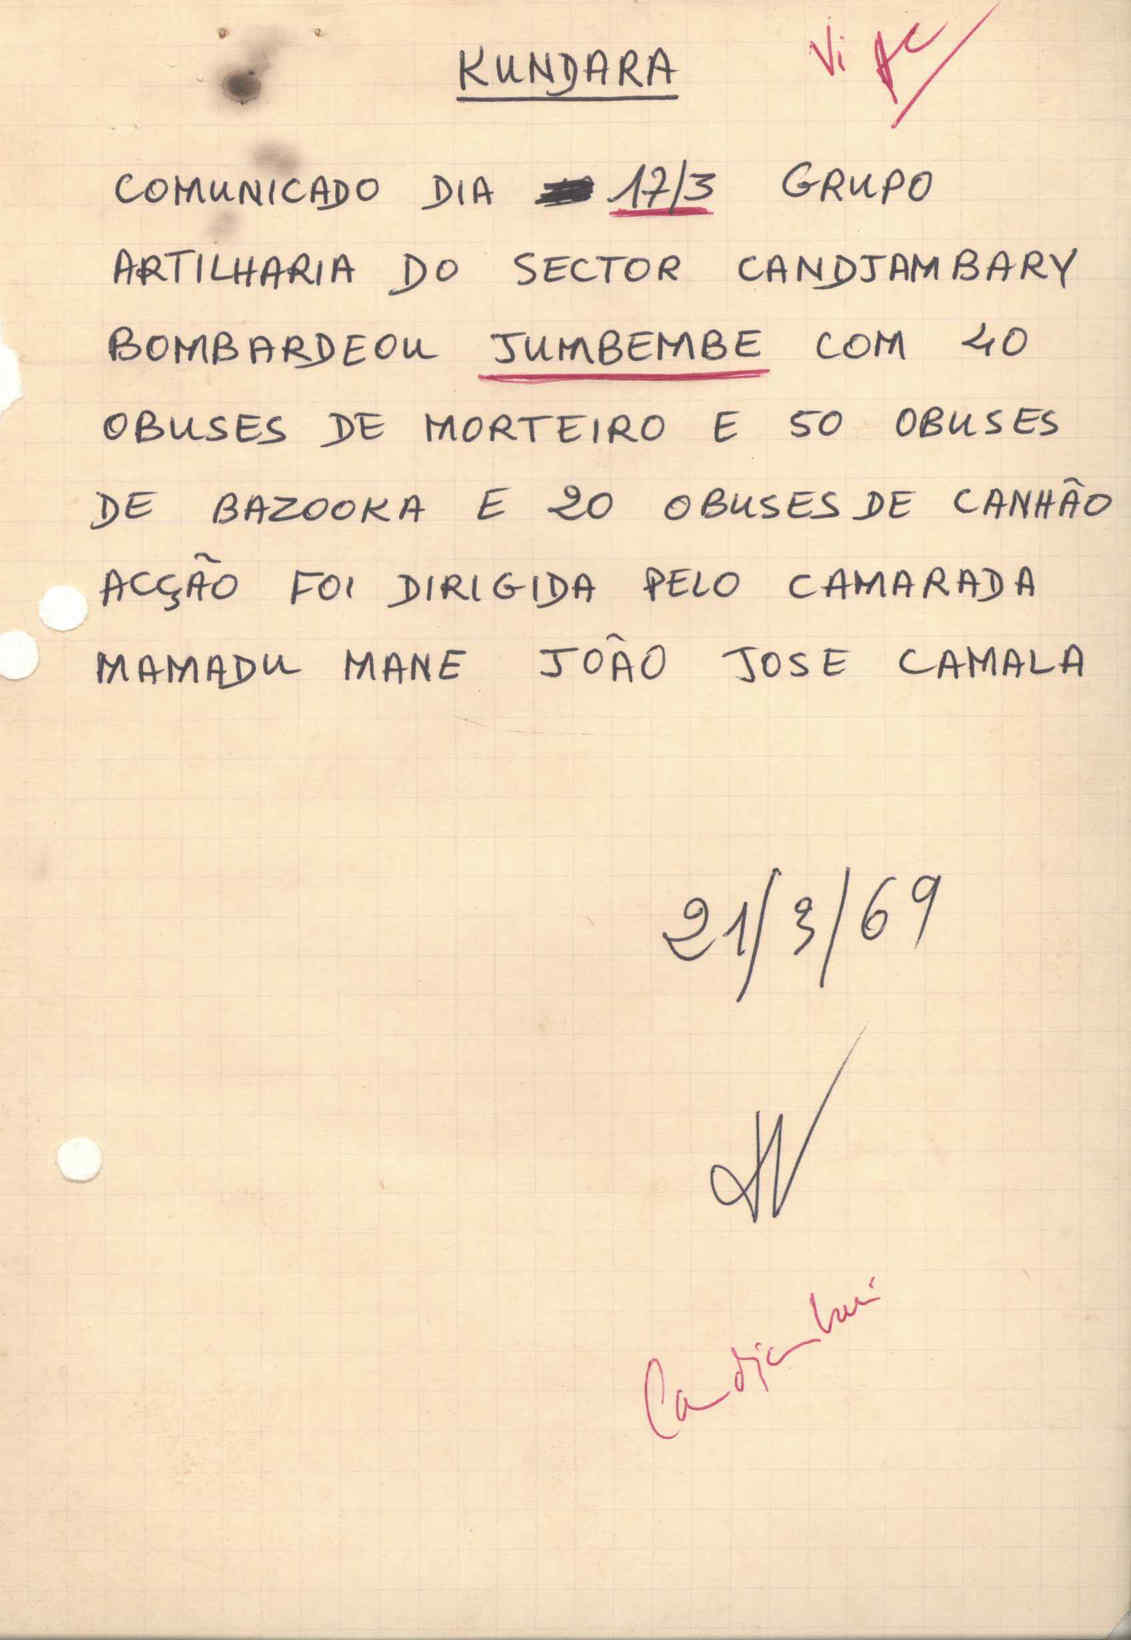 KUNDARA
Vi AC
COMUNICADO DIA 17/3 GRUPO
ARTILHARIA DO SECTOR CANDJAMBARY
BOMBARDEOU JUMBEMBE COM 40
OBUSES DE MORTEIRO E 50 OBUSES
DE BAZOOKA E 20 OBUSES DE CANHÂO
ACÇÃO FOI DIRIGIDA PELO CAMARADA
MAMADU MANE JOÂO JOSE CAMALA
21/3/69
Candjambari